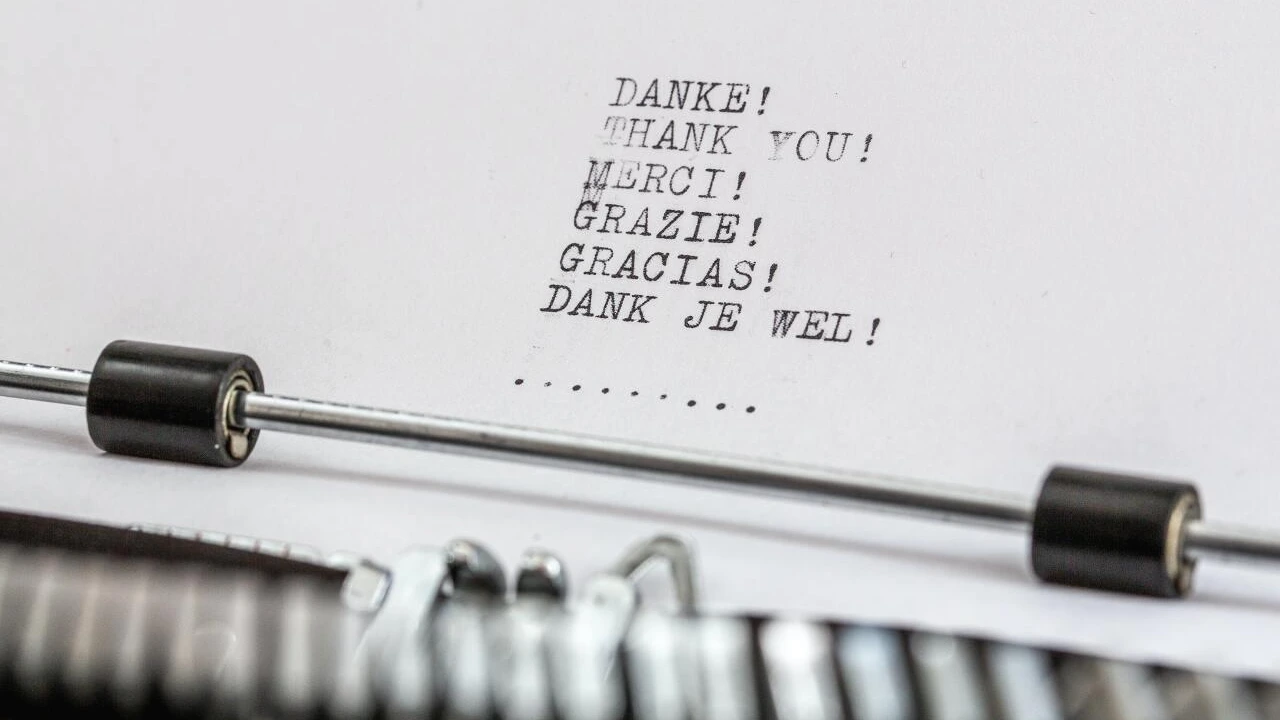 DANKE!
THANK YOU!
MERCI!
GRAZIE!
GRACIAS!
DANK JE WEL!
.........